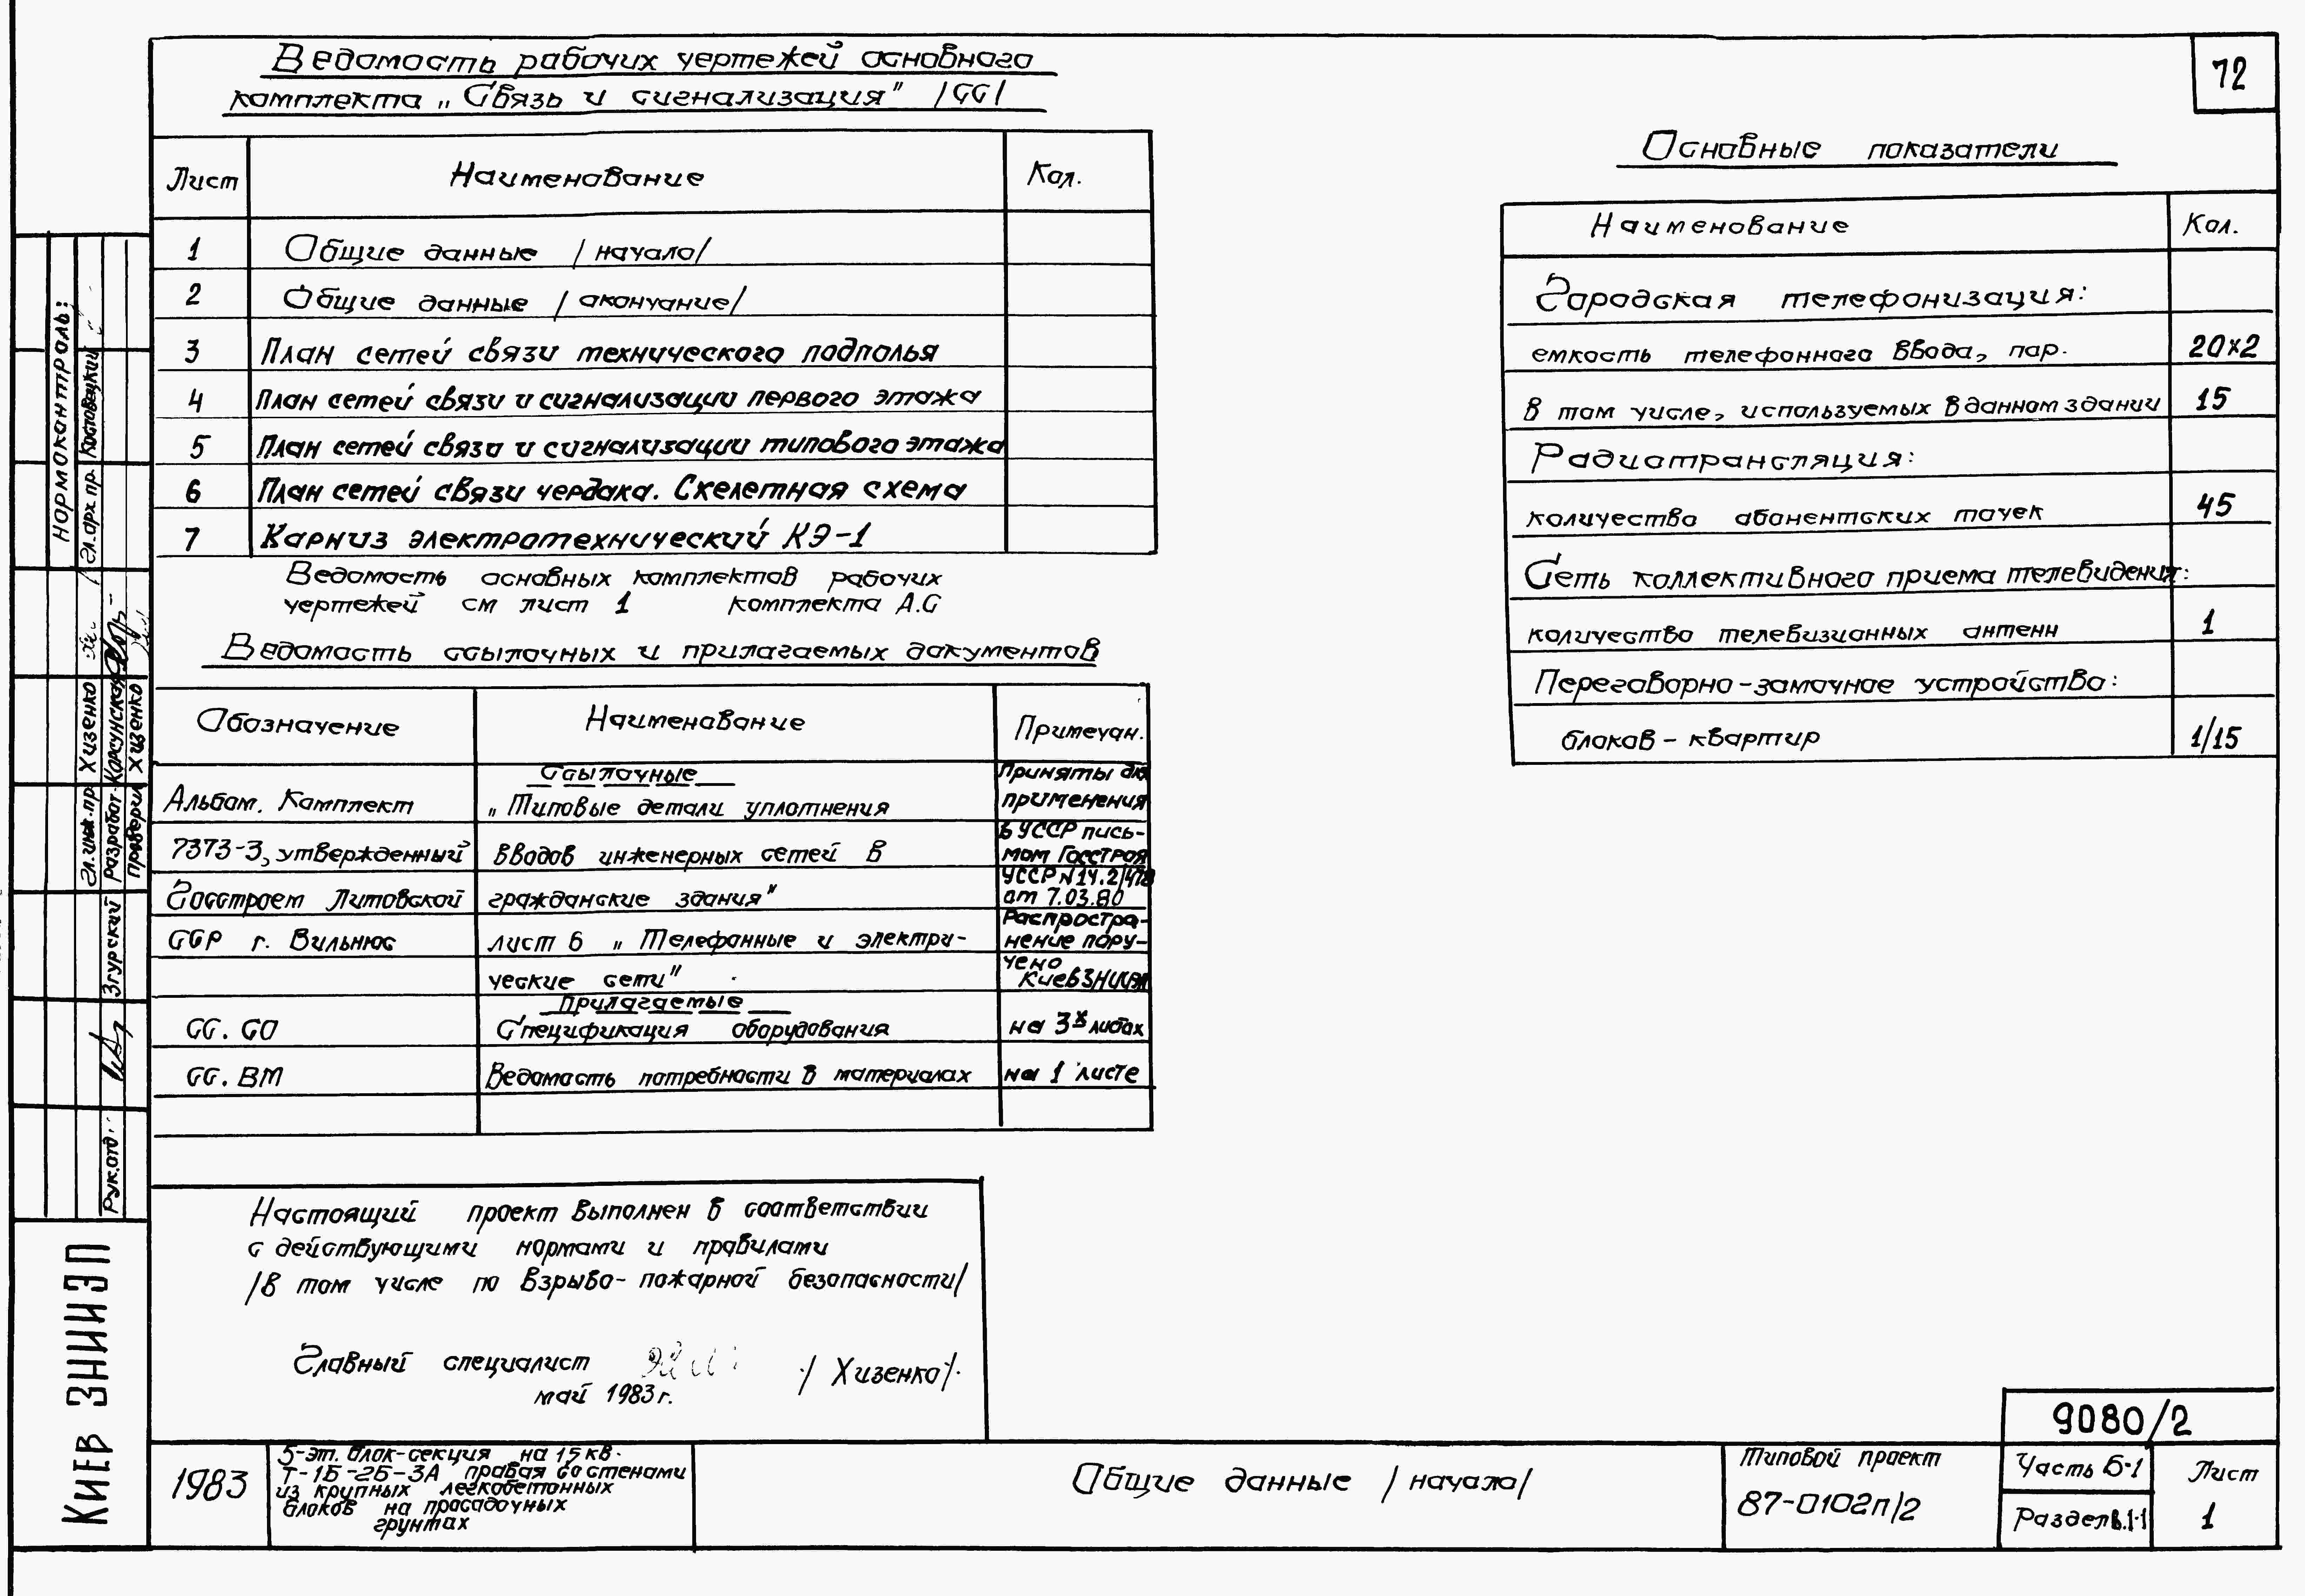 72
Ведомость рабочих чертежей основного
комплекта „Связь и сигнализация" /СС/
Лист Наименование Кол.
1 Общие данные /начало/
2 Общие данные /окончание/
3 План сетей связи технического подполья
4 План сетей связи и сигнализации первого этажа
5 План сетей связи и сигнализации типового этажа
6 План сетей связи чердака. Скелетная схема
7 Карниз электротехнический КЭ-1
Ведомость основных комплектов рабочих
чертежей см лист 1 комплекта А.С
Ведомость ссылочных и прилагаемых документов
Обозначение Наименование Примечан.
Ссылочные
Альбом. Комплект „Типовые детали уплотнения
7373-3, утвержденный вводов инженерных сетей в
Госстроем Литовской гражданские здания"
ССР г. Вильнюс лист 6 „Телефонные и электри-
ческие сети"
Приняты для
применения
в УССР пись-
мом Госстроя
УССР N14.2/478
от 7.03.80
Распростра-
нение пору-
чено
КиевЗНИИЭП
Прилагаемые
СС. СО Спецификация оборудования на 3х листах
СС. ВМ Ведомость потребности в материалах на 1 листе
Настоящий проект выполнен в соответствии
с действующими нормами и правилами
/в том числе по взрыво-пожарной безопасности/
Главный специалист /Хизенко/
май 1983 г.
Основные показатели
Наименование Кол.
Городская телефонизация:
емкость телефонного ввода, пар. 20×2
в том числе, используемых в данном здании 15
Радиотрансляция:
количество абонентских точек 45
Сеть коллективного приема телевидения:
количество телевизионных антенн 1
Переговорно-замочное устройство:
блоков - квартир 1/15
Нормоконтроль:
Гл. арх. пр. Костовецкий
Гл. инж. пр. Хизенко
Разработ. Корсунская
Проверил Хизенко
Рук. отд. Згурский
Киев ЗНИИЭП
1983
5-эт. блок-секция на 15 кв.
Т-1Б-2Б-3А правая со стенами
из крупных легкобетонных
блоков на просадочных
грунтах
Общие данные /начало/
Типовой проект
87-0102п/2
9080/2
Часть Б-1
Раздел
Лист
1